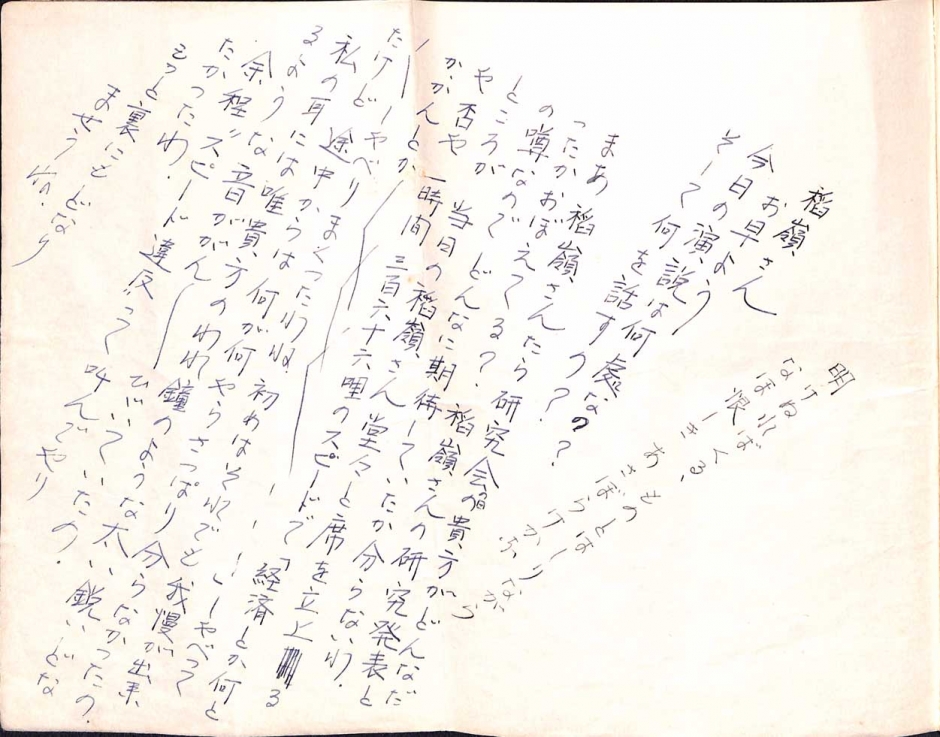 稻嶺、
お早よう
今日の演説は何處なの?
そして何を話すの?
まあ稻嶺さんたら研究会の貴方がどんなだ
ったかおぼえてる?稻嶺さんの研究発表と
の噂なのでどんなに期待していたか分らないわ.
ところが当日の稻嶺さん堂々と席を立上る
や否や一時間三百六十六哩のスピードで「経済とか何と
かかんとか
たけど途中からは何が何やらさっぱり分らなかったの.
私の耳には唯貴方のわれ鐘のような太い鋭いどな
るような音ががん
余程"スピード違反"って叫んでやり
たかったわ.
もっと裏にもどなり
ませうね.
明けぬればくるゝものとはしりながら
なほ恨しきあさぼらけかな